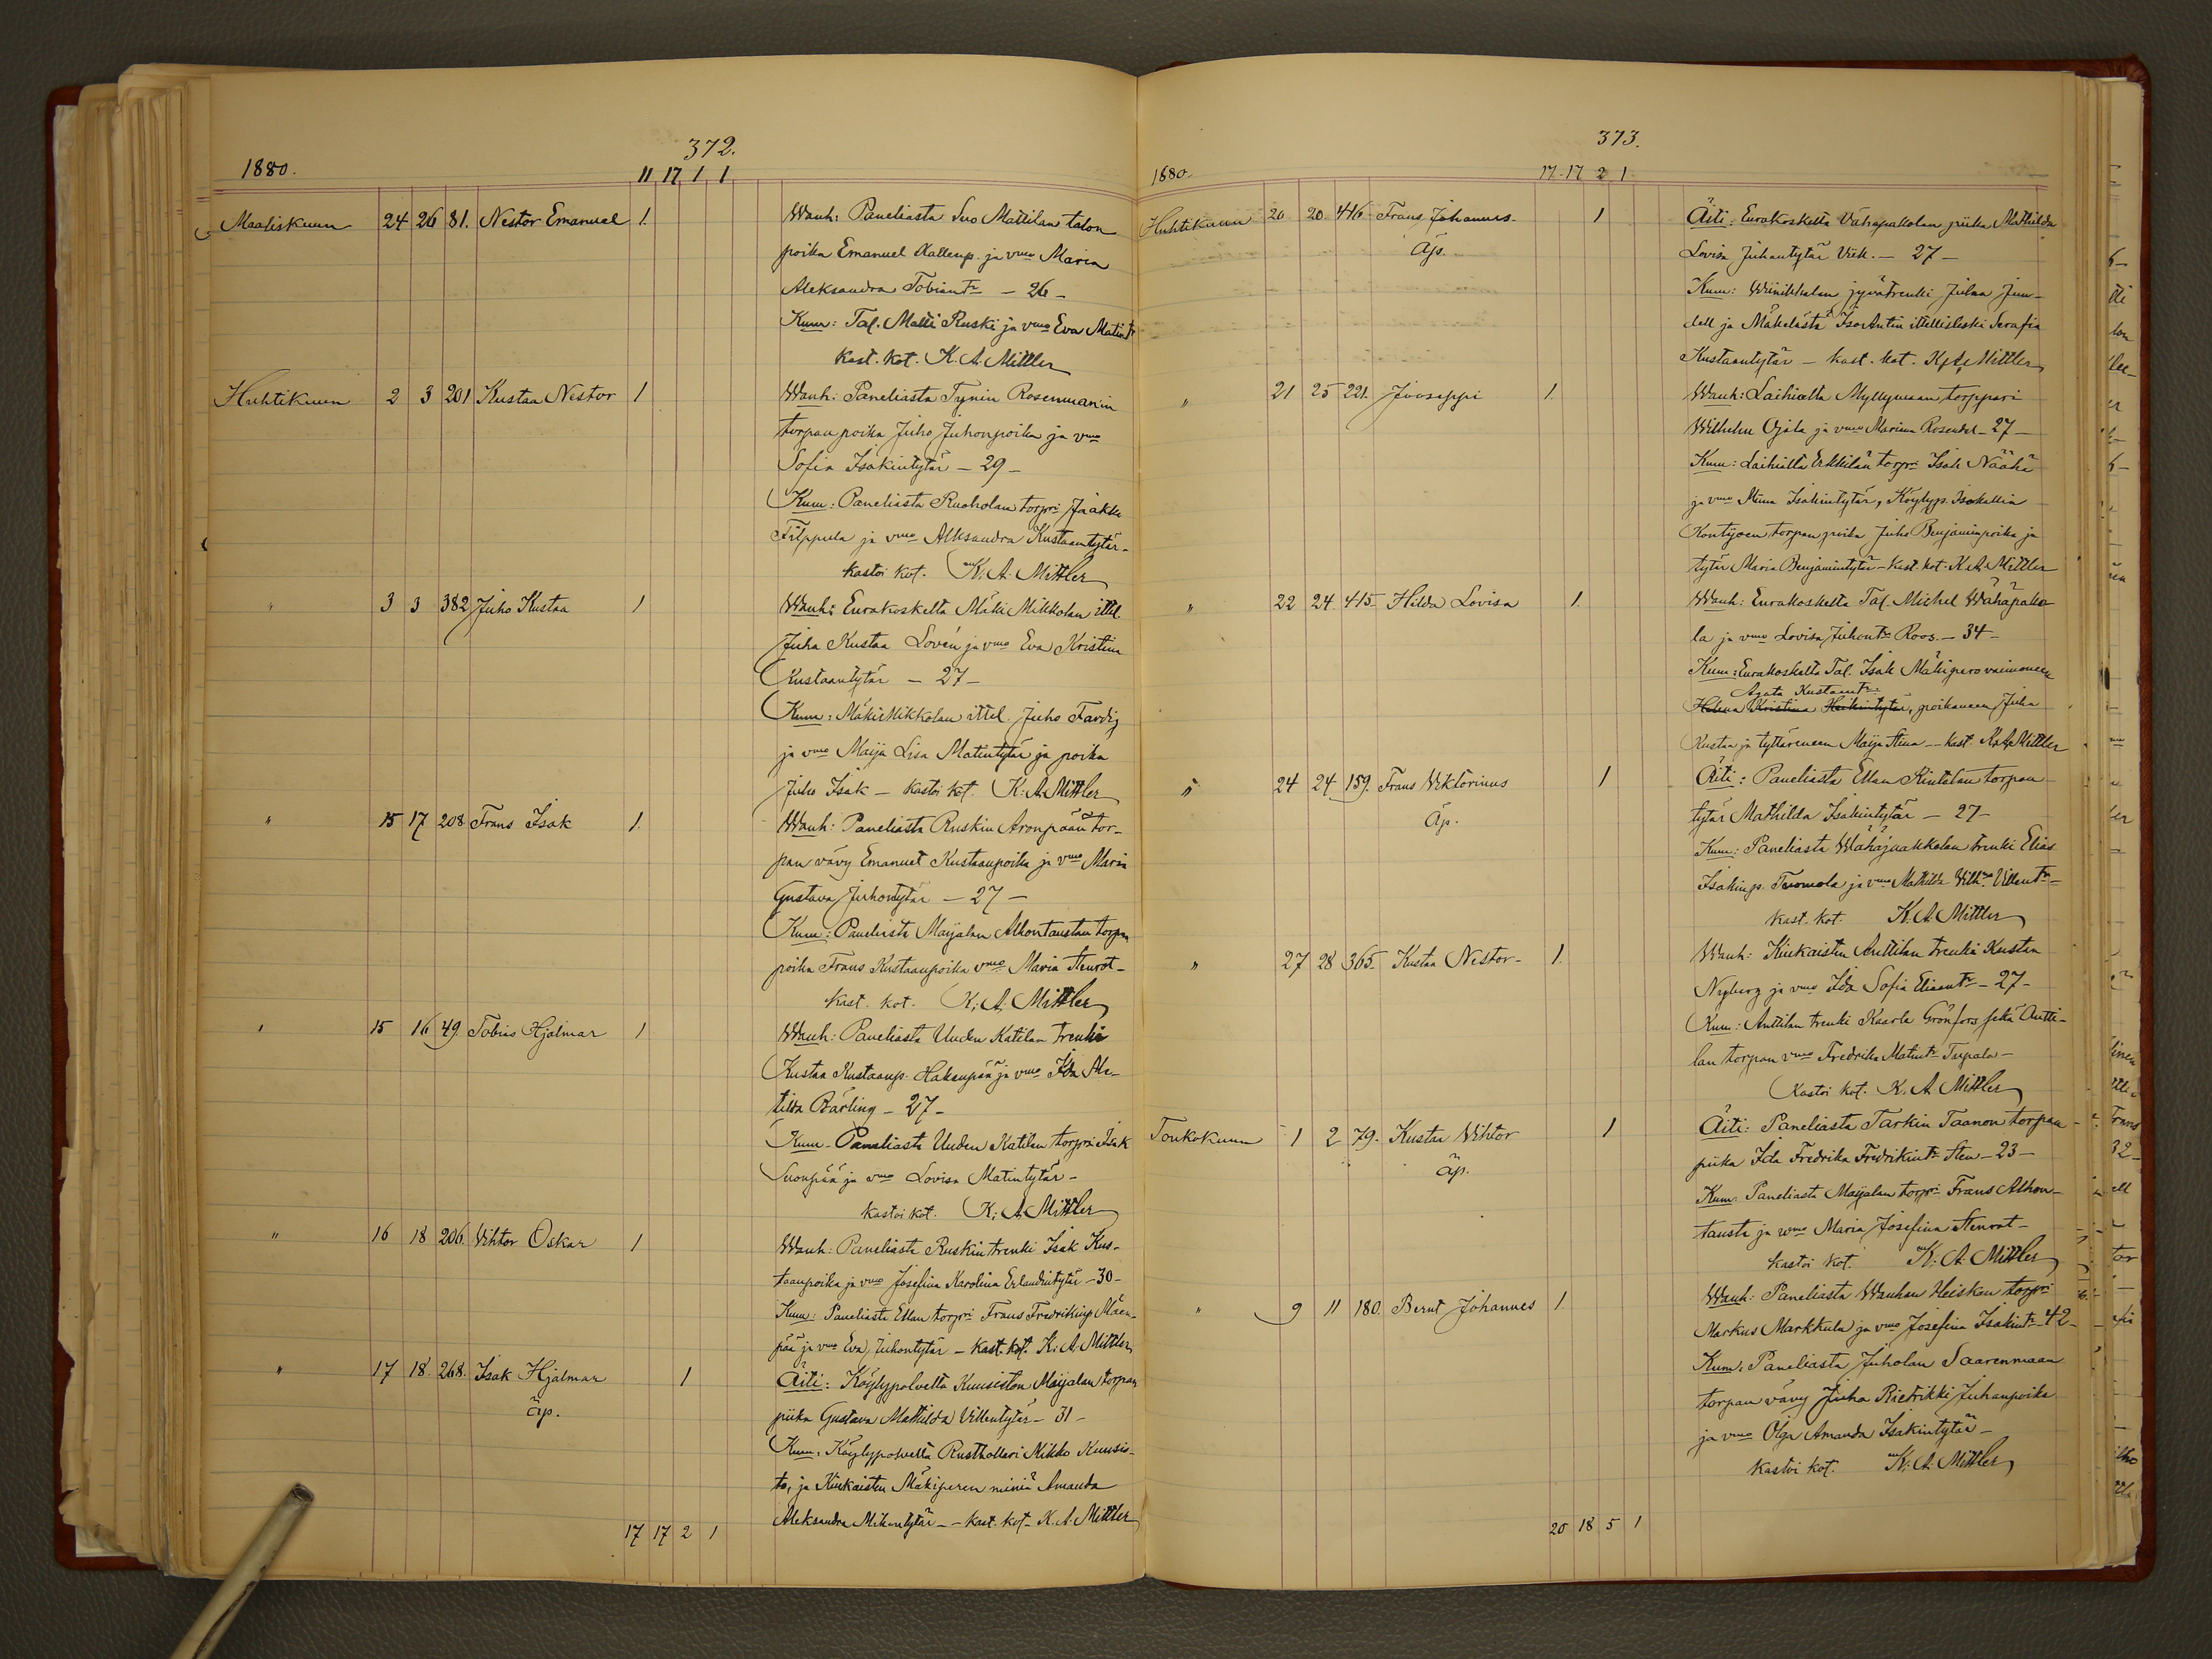 372.
1880.
11 17 1 1
Maaliskuun 24 26 81. Nestor Emanuel 1. Wanh: Paneliasta Suo Mattilan talon
poika Emanuel Kallenp. ja vmo Maria
Aleksandra Tobiantr - 26 -
Kum: Tal. Matti Ruski ja vmo Eva Matintr
Kast. kot. K. A. Mittler
Huhtikuun 2 3 201 Kustaa Nestor 1 Wanh: Paneliasta Tynin Rosenmanin
torpan poika Juho Juhonpoika ja vmo
Sofia Isakintytär - 29 -
Kum: Paneliasta Ruoholan torpri Jaakko
Filppula ja vmo Alksandra Kustaantytär -
kastoi kot. K. A. Mittler
" 3 3 382 Juho Kustaa 1 Wanh: Eurakoskelta Mäki Mikkolan ittel.
Juha Kustaa Lovén ja vmo Eva Kristina
Kustaantytär - 27 -
Kum: Mäki Mikkolan ittel. Juho Fardig
ja vmo Maija Lisa Matintytär ja poika
Juho Isak - kastoi kot. K. A. Mittler
" 15 17 208 Frans Isak 1. Wanh: Paneliasta Ruskin Aronpään tor-
pan vävy Emanuel Kustaanpoika ja vmo Maria
Gustava Juhontytär - 27 -
Kum: Paneliasta Maijalan Alhontaustan torpan
poika Frans Kustaanpoika vmo Maria Stenrot -
Kast. kot. K. A. Mittler
" 15 16 49. Tobias Hjalmar 1 Wanh: Paneliasta Uuden Katilan trenki
Kustaa Kustaanp. Hakaupää ja vmo Ida Ma-
tilda Bärling - 27 -
Kum - Paneliasta Uuden Katilan torpri Isak
Suonpää ja vmo Lovisa Matintytär -
kastoi kot. K. A. Mittler
" 16 18 206. Vihtor Oskar 1 Wanh: Paneliasta Ruskin trenki Isak Kus-
taanpoika ja vmo Josefina Karolina Erlandintytär - 30 -
Kum: Paneliasta Ellan torpri Frans Fredrikinp. Mäen-
pää ja vmo Eva Juhontytär - Kast. kot. K. A. Mittler
" 17 18. 268. Isak Hjalmar 1 Äiti: Köylypolvelta Kuusiston Maijalan torpan
äp. piika Gustava Mathilda Villentytär - 31 -
Kum: Köylypolvelta Rusthollari Mikko Kuusis-
to, ja Kiukaisten Mäkiperen miniä Amanda
Aleksandra Mikontytär - - Kast. kot - K. A. Mittler
17 17 2 1
373.
1880.
17 - 17 2 1
Huhtikuun 20 20 416 Frans Johannes - 1 Äiti: Eurakoskelta Vähäpakolan piika Mathilda
Äp. Lovisa Juhantytär - 27 -
Kum: Winikkalan jyvätrenki Juhaa Jun-
dell ja Mäkelästä IsoAntin ittellisleski Serafia
Kustaantytär - kast. kot. K. A. Mittler
" 21 25 221. Jooseppi 1. Wanh: Laihialta Myllymaan torppari
Wilhelm Ojala ja vmo Mariana Rosendal - 27 -
Kum: Laihialta Erkkilän torpri Isak Näähä
ja vmo Miina Isakintytär, Köylyp. Isokallin
Kontijoen torpan poika Juho Benjaminpoika ja
tytär Maria Benjamintytär - Kast. kot. K. A. Mittler
" 22 24 415 Hilda Lovisa 1. Wanh: Eurakoskelta Tal. Michel Wähäpako-
la ja vmo Lovisa Juhontr Roos. - 34 -
Kum: Eurakoskelta Tal. Isak Mäkipero vaimoneen
Agata Kustaantr
Helena Kristina Heikintytär, poikaneen Juha
Kustaa ja tyttäreneen Maija Stina - kast. K. A. Mittler
" 24 24 159. Frans Viktorinus 1 Äiti: Paneliasta Ellan Rintalan torpan
Äp. tytär Mathilda Isakintytär - 27 -
Kum: Paneliasta Wähäjaakkolan trenki Elias
Isakinp. Tuomola ja vmo Mathilda Vilhma Villentr -
kast. kot. K. A. Mittler
" 27 28 365. Kustaa Nestor - 1. Wanh: Kiukaisten Anttilan trenki Kustaa
Nyberg ja vmo Ida Sofia Eliantr - 27 -
Kum: Anttilan trenki Kaarle Grönfors sekä Antti-
lan torpan vmo Fredrika Matintr Tupala -
Kastoi kot. K. A. Mittler
Toukokuun 1 2 79. Kustaa Vihtor 1 Äiti: Paneliasta Tarkin Taanon torpan
äp. piika Ida Fredrika Fredrikintr Sten - 23 -
Kum: Paneliasta Maijalan torpri Frans Alhon-
tausta ja vmo Maria Josefina Stenrot -
kastoi kot. K. A. Mittler
" 9 11 180. Bernt Johannes 1. Wanh: Paneliasta Wanhan Heiskan torpri
Markus Markkula ja vmo Josefina Isakintr - 42 -
Kum: Paneliasta Juholan Saarenmaan
torpan vävy Juha Riedrikki Juhanpoika
ja vmo Olga Amanda Isakintytär -
Kastoi kot. K. A. Mittler
20 18 5 1